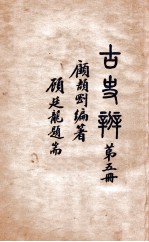 古史辨
第五冊
顧頡剛編著
顧廷龍題耑